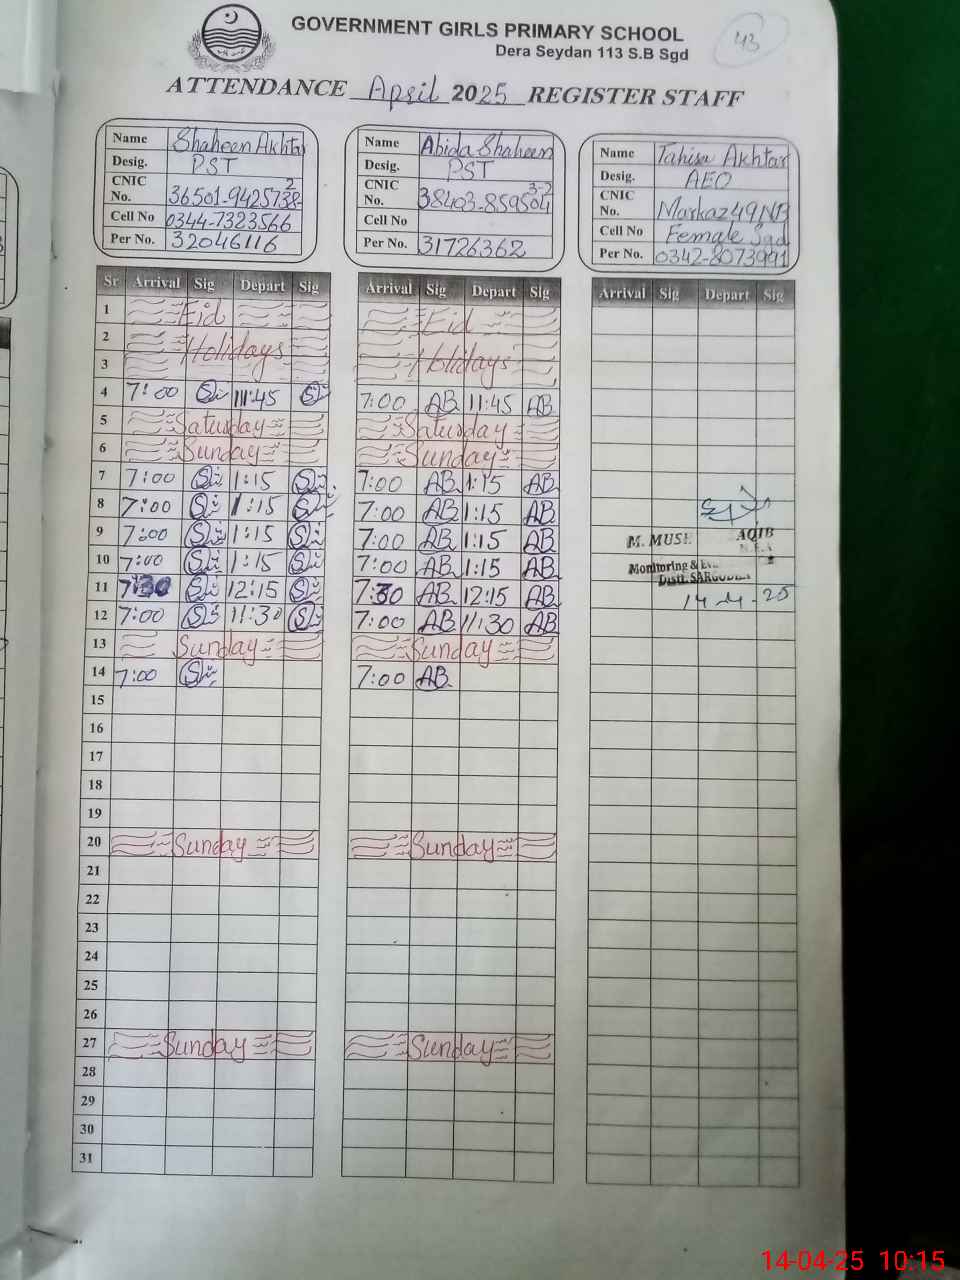 GOVERNMENT GIRLS PRIMARY SCHOOL
Dera Seydan 113 S.B Sgd
43
ATTENDANCE April 2025 REGISTER STAFF
Name Shaheen Akhtar
Desig. PST
CNIC No. 36501-9425738-2
Cell No 0344-7323566
Per No. 32046116
Name Abida Shaheen
Desig. PST
CNIC No. 38403-859504
3-2
Cell No
Per No. 31726362
Name Tahira Akhtar
Desig. AEO
CNIC No. Markaz 49NB
Cell No Female Sgd
Per No. 0342-8073991
Sr Arrival Sig Depart Sig Arrival Sig Depart Sig Arrival Sig Depart Sig
1 Eid Eid
2 Holidays Holidays
3
4 7:00 11:45 7:00 AB 11:45 AB
5 Saturday Saturday
6 Sunday Sunday
7 7:00 1:15 7:00 AB 1:15 AB
8 7:00 1:15 7:00 AB 1:15 AB
9 7:00 1:15 7:00 AB 1:15 AB
M. MUSE AQIB
10 7:00 1:15 7:00 AB 1:15 AB
Monitoring &
Distt. SARGODHA
11 7:30 12:15 7:30 AB 12:15 AB
14-4-25
12 7:00 11:30 7:00 AB 11:30 AB
13 Sunday Sunday
14 7:00 7:00 AB
15
16
17
18
19
20 Sunday Sunday
21
22
23
24
25
26
27 Sunday Sunday
28
29
30
31
14-04-25 10:15